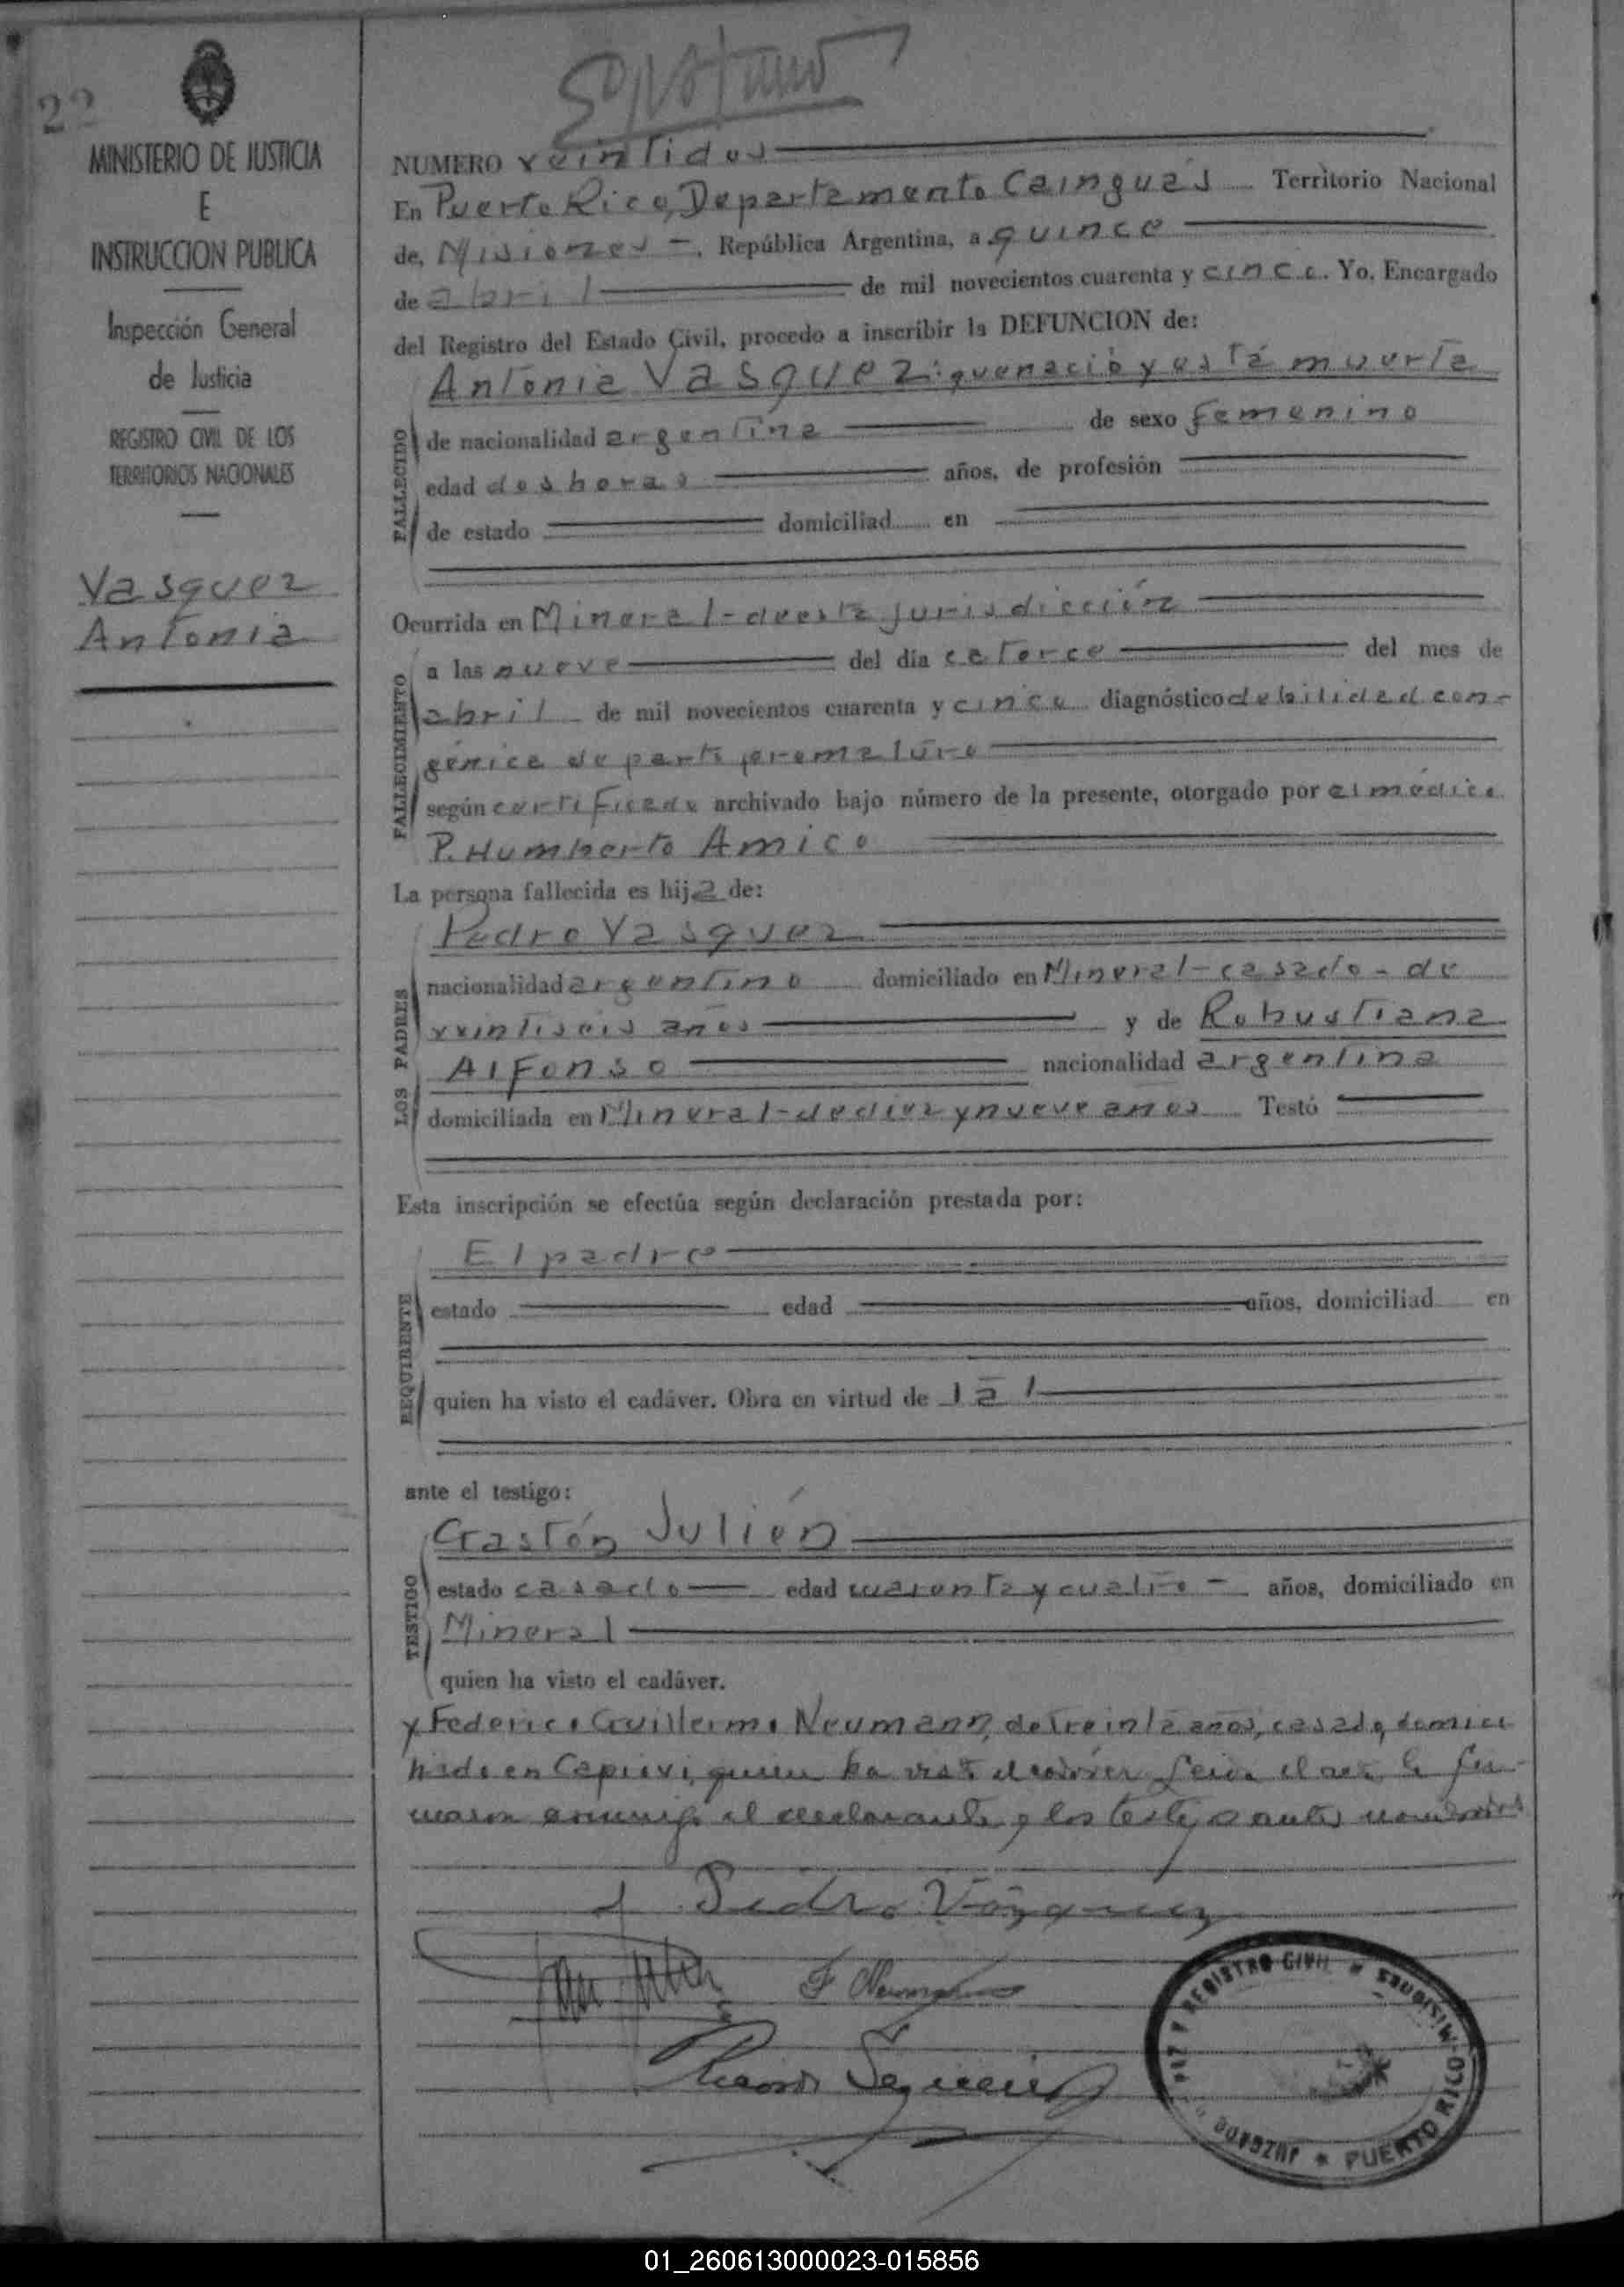 22
MINISTERIO DE JUSTICIA
E
INSTRUCCION PUBLICA
Inspección General
de Justicia
REGISTRO CIVIL DE LOS
TERRITORIOS NACIONALES
Vasquez
Antonia
NUMERO veintidos
En Puerto Rico, Departamento Cainguás Territorio Nacional
de, Misiones -. República Argentina, a quince
de abril de mil novecientos cuarenta y cinco. Yo, Encargado
del Registro del Estado Civil, procedo a inscribir la DEFUNCION de:
Antonia Vasquez: que nació y está muerta
FALLECIDO
de nacionalidad argentina de sexo femenino
edad dos horas años, de profesión
de estado domiciliad en
Ocurrida en Mineral - de esta jurisdicción
FALLECIMIENTO
a las nueve del día catorce del mes de
abril de mil novecientos cuarenta y cinco diagnóstico debilidad con-
génica de parto prematuro
según certificado archivado bajo número de la presente, otorgado por el médico
P. Humberto Amico
La persona fallecida es hija de:
LOS PADRES
Pedro Vasquez
nacionalidad argentino domiciliado en Mineral - casado - de
veintiseis años y de Robustiana
Alfonso nacionalidad argentina
domiciliada en Mineral - de diez y nueve anos Testó
Esta inscripción se efectúa según declaración prestada por:
REQUIRENTE
El padre
estado edad años, domiciliad en
quien ha visto el cadáver. Obra en virtud de
ante el testigo:
TESTIGO
Gastón Julién
estado casado - edad cuarenta y cuatro - años, domiciliado en
Mineral
quien ha visto el cadáver.
y Federico Guillermo Neumann, de treinta años, casado, domici
liado en Capiovi, quien ha visto el cadáver Leida el acta la fir-
maron conmigo el declarante y los testigos antes nombrados
Pedro Vázquez
F Neumann
JUZGADO DE PAZ Y REGISTRO CIVIL * MISIONES * PUERTO RICO
01_260613000023-015856